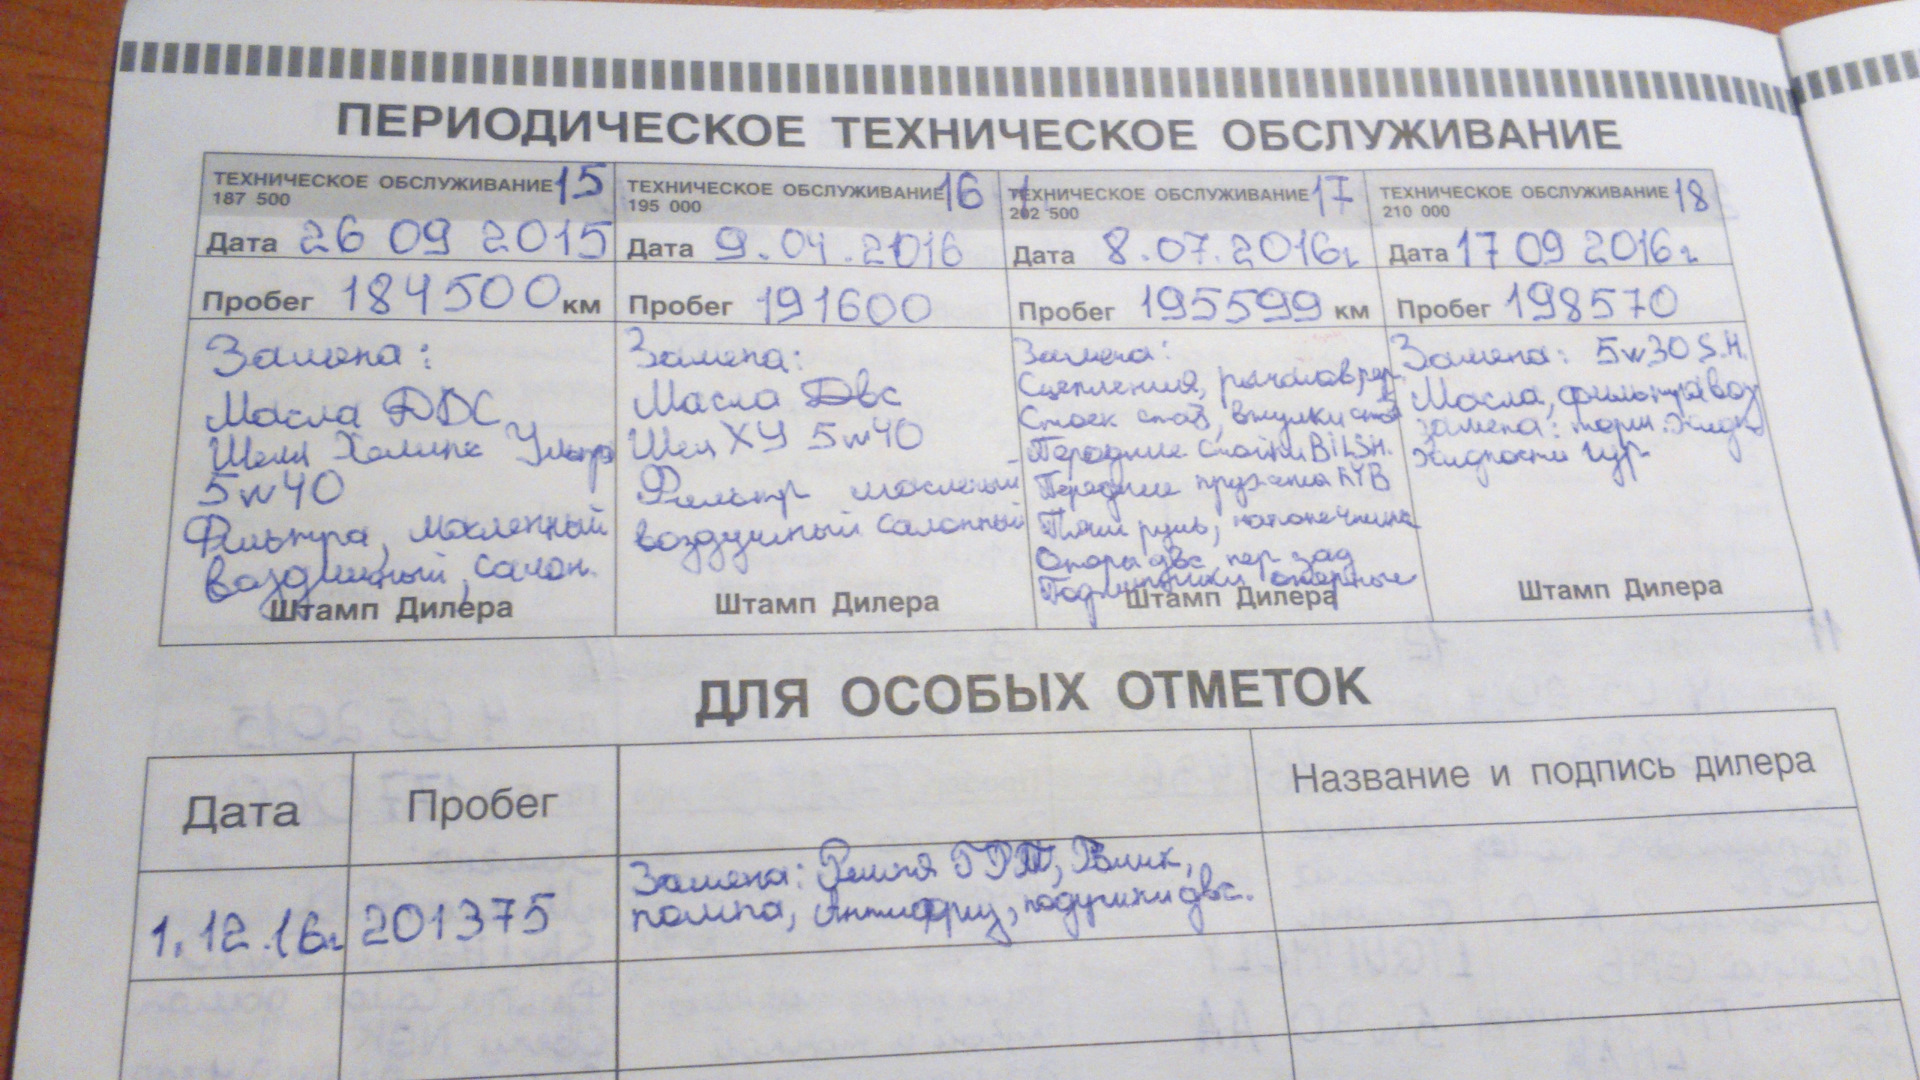 ПЕРИОДИЧЕСКОЕ ТЕХНИЧЕСКОЕ ОБСЛУЖИВАНИЕ
ТЕХНИЧЕСКОЕ ОБСЛУЖИВАНИЕ 15
187 500
Дата 26 09 2015
Пробег 184500 км
Замена:
Масла ДВС
Шелл Хеликс Ультра
5w40
Фильтра, масленный
воздушный, салон.
Штамп Дилера
ТЕХНИЧЕСКОЕ ОБСЛУЖИВАНИЕ 16
195 000
Дата 9.04.2016
Пробег 191600
Замена:
Масла Двс
Шел ХУ 5w40
Фильтр масленый
воздушный салонный
Штамп Дилера
ТЕХНИЧЕСКОЕ ОБСЛУЖИВАНИЕ 17
202 500
Дата 8.07.2016г
Пробег 195599 км
Замена:
Сцепления, рычагов пер.
Стоек стаб, втулки стаб
Передние стойки BILSH.
Передние пружины KYB
Тяги руль, наконечники
Опоры двс пер зад
Подшипники опорные
Штамп Дилера
ТЕХНИЧЕСКОЕ ОБСЛУЖИВАНИЕ 18
210 000
Дата 17 09 2016г
Пробег 198570
Замена: 5w30 S.H.
Масла, фильтра воз
замена: торм. жидк
жидкости гур
Штамп Дилера
ДЛЯ ОСОБЫХ ОТМЕТОК
Дата Пробег Название и подпись дилера
1.12.16г 201375 Замена: Ремня ГРМ, Ролик,
помпа, Антифриз, подушки двс.